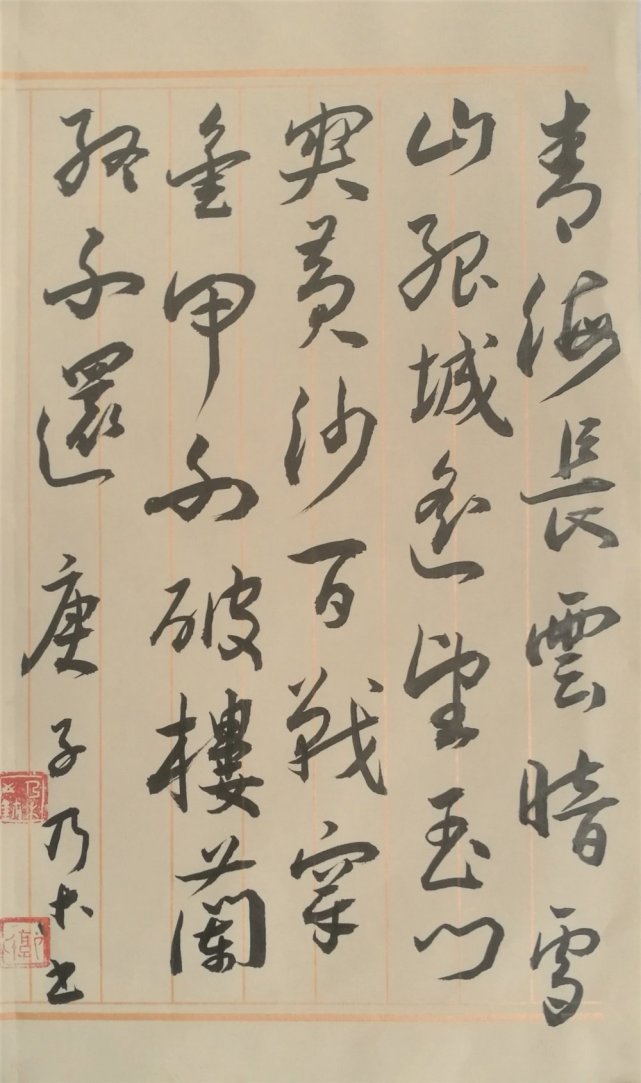 青海長雲暗雪
山孤城遥望玉門
關黄沙百戰穿
金甲不破樓蘭
終不還 庚子乃木书